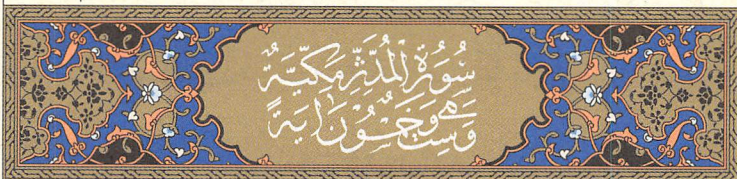 سُورَةُ الْمُدَّثِّرِ مَكِّيَّةٌ
وَهِيَ سِتٌّ وَخَمْسُونَ اٰيَةً